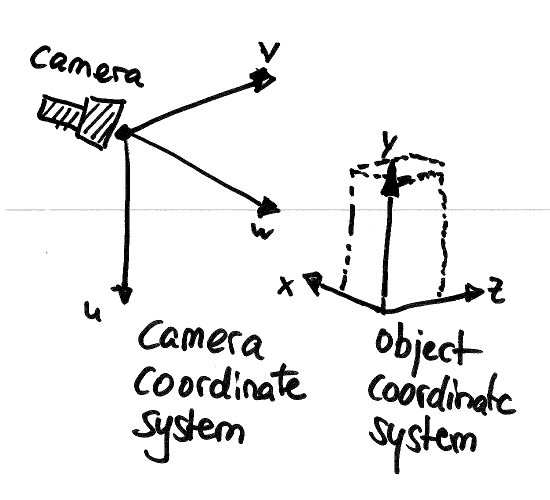 Camera
V
y
w
x
z
u
Camera
Coordinate
system
object
coordinate
system